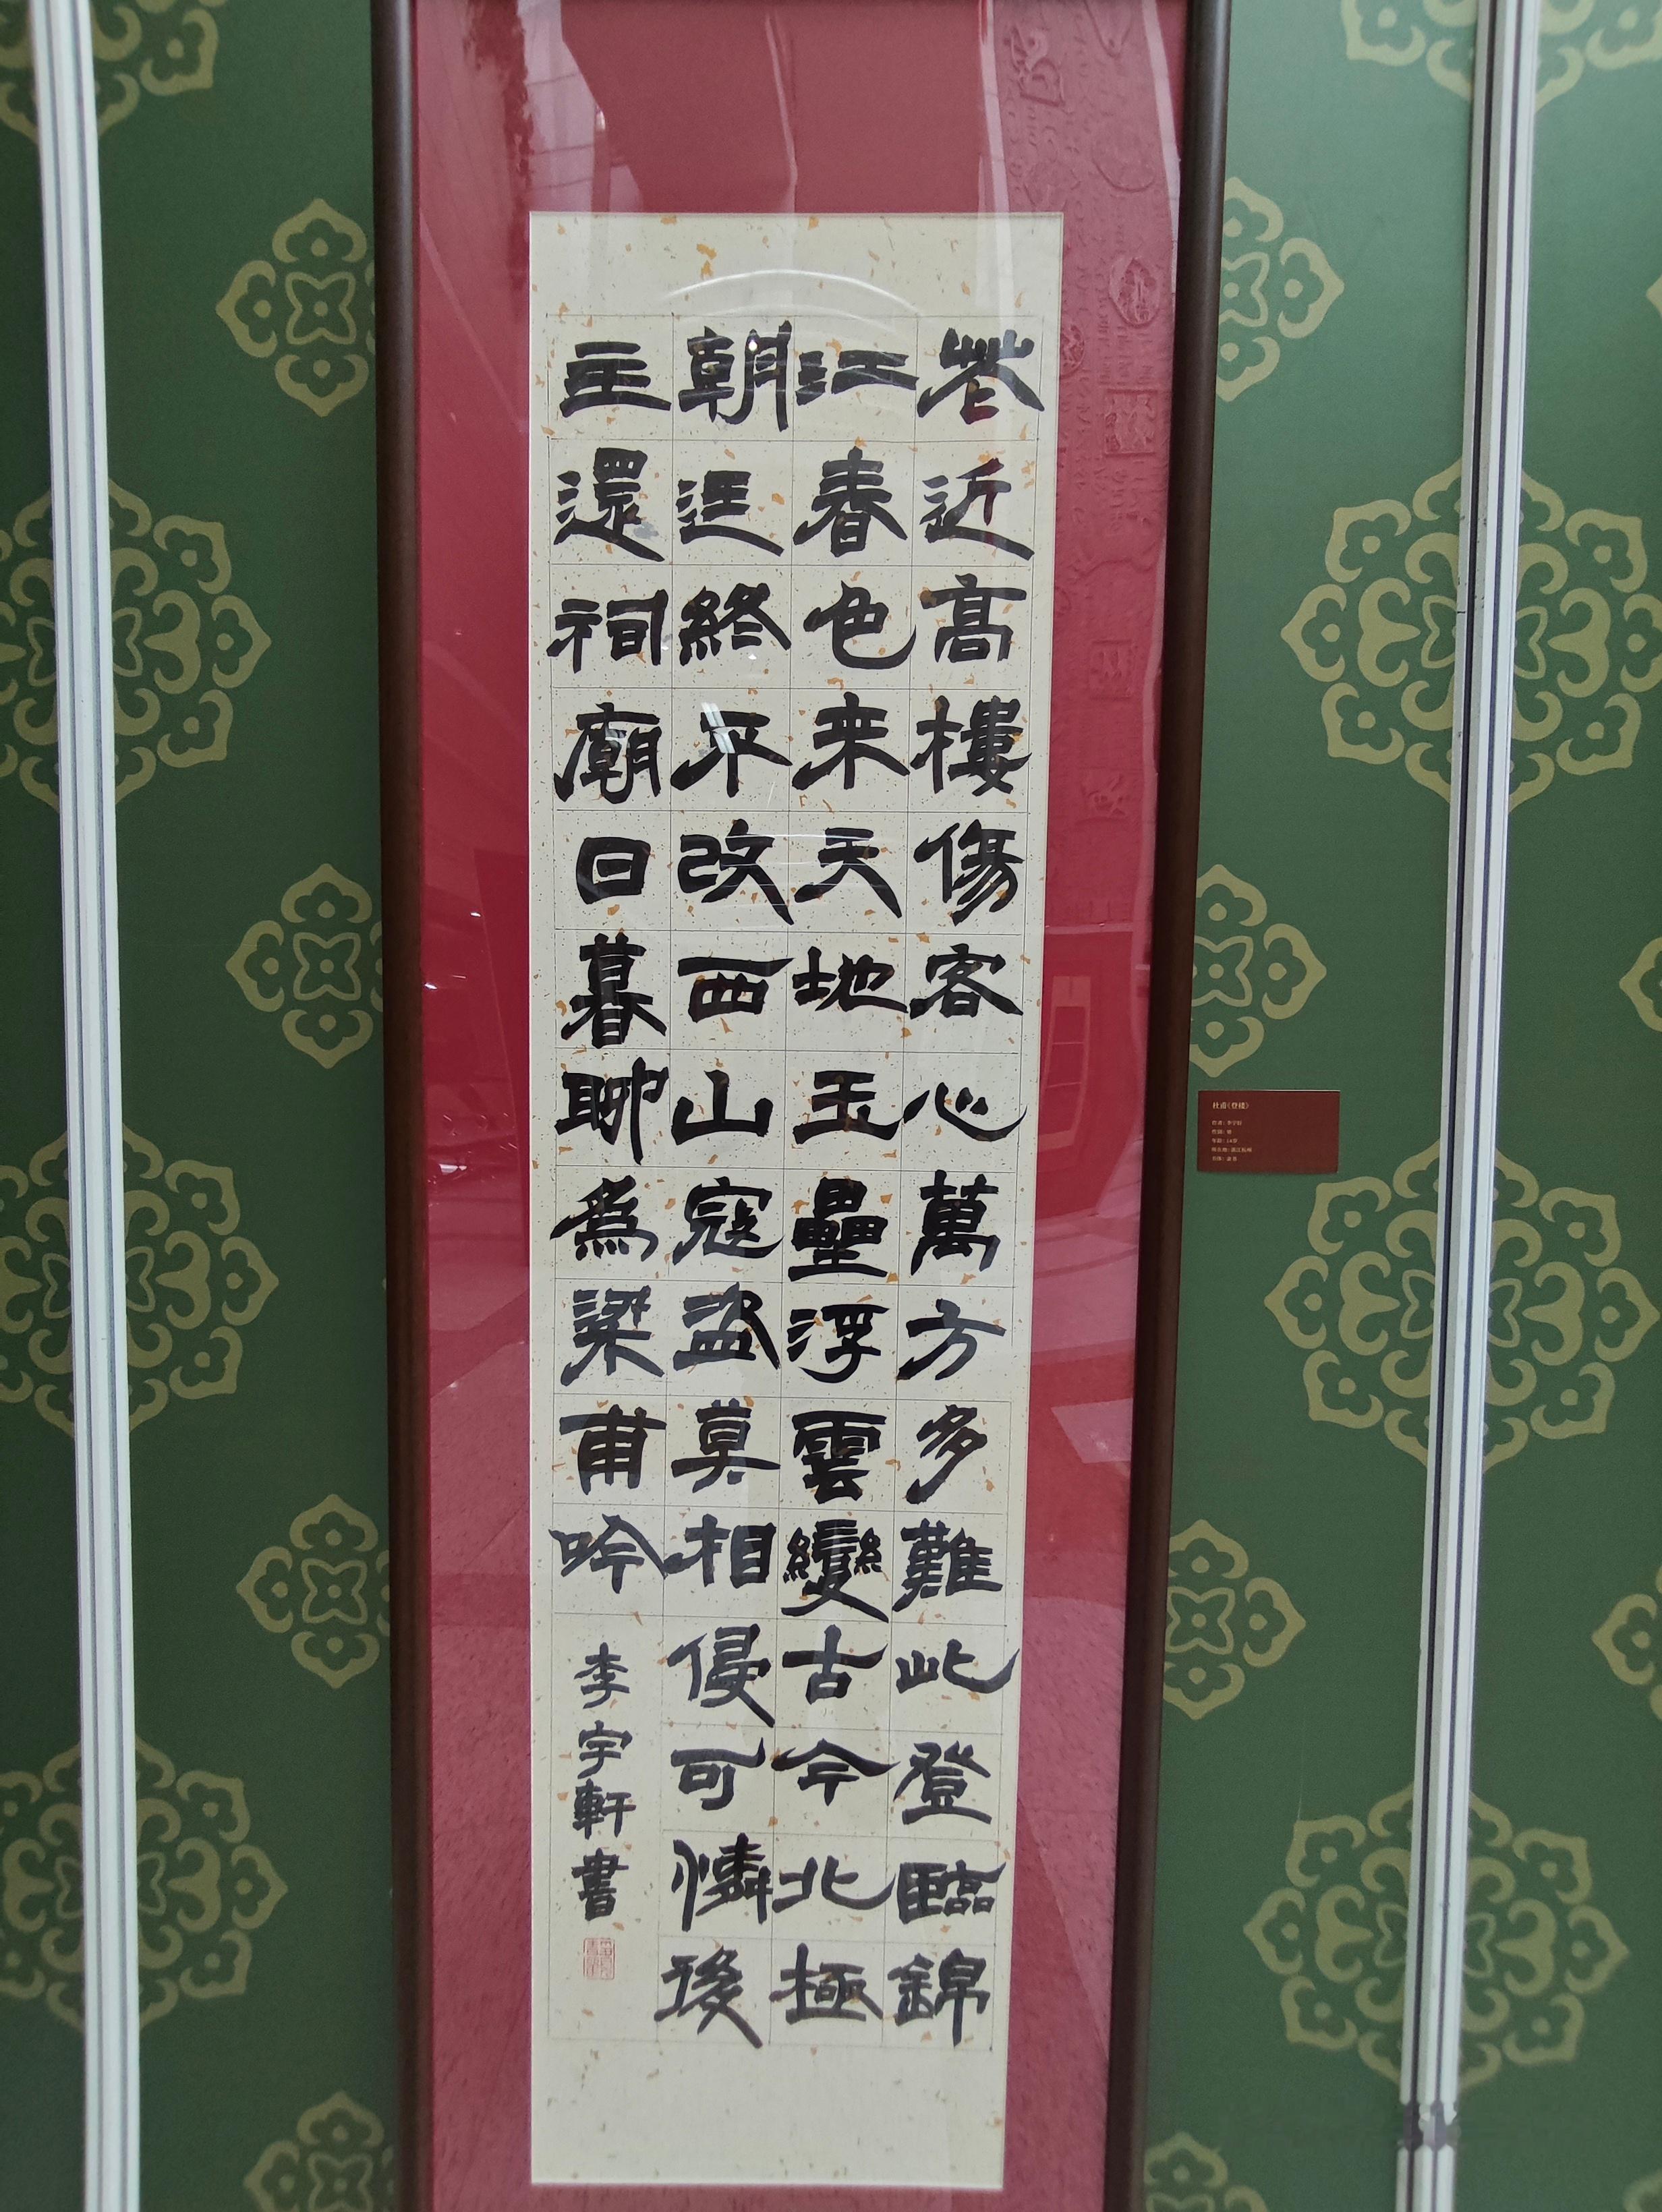 花近高樓傷客心萬方多難此登臨錦
江春色来天地玉壘浮雲變古今北極
朝廷終不改西山寇盜莫相侵可憐後
主還祠廟日暮聊為梁甫吟
李宇軒書
杜甫《登楼》
作者：李宇轩
性别：男
年龄：14岁
书体：隶书